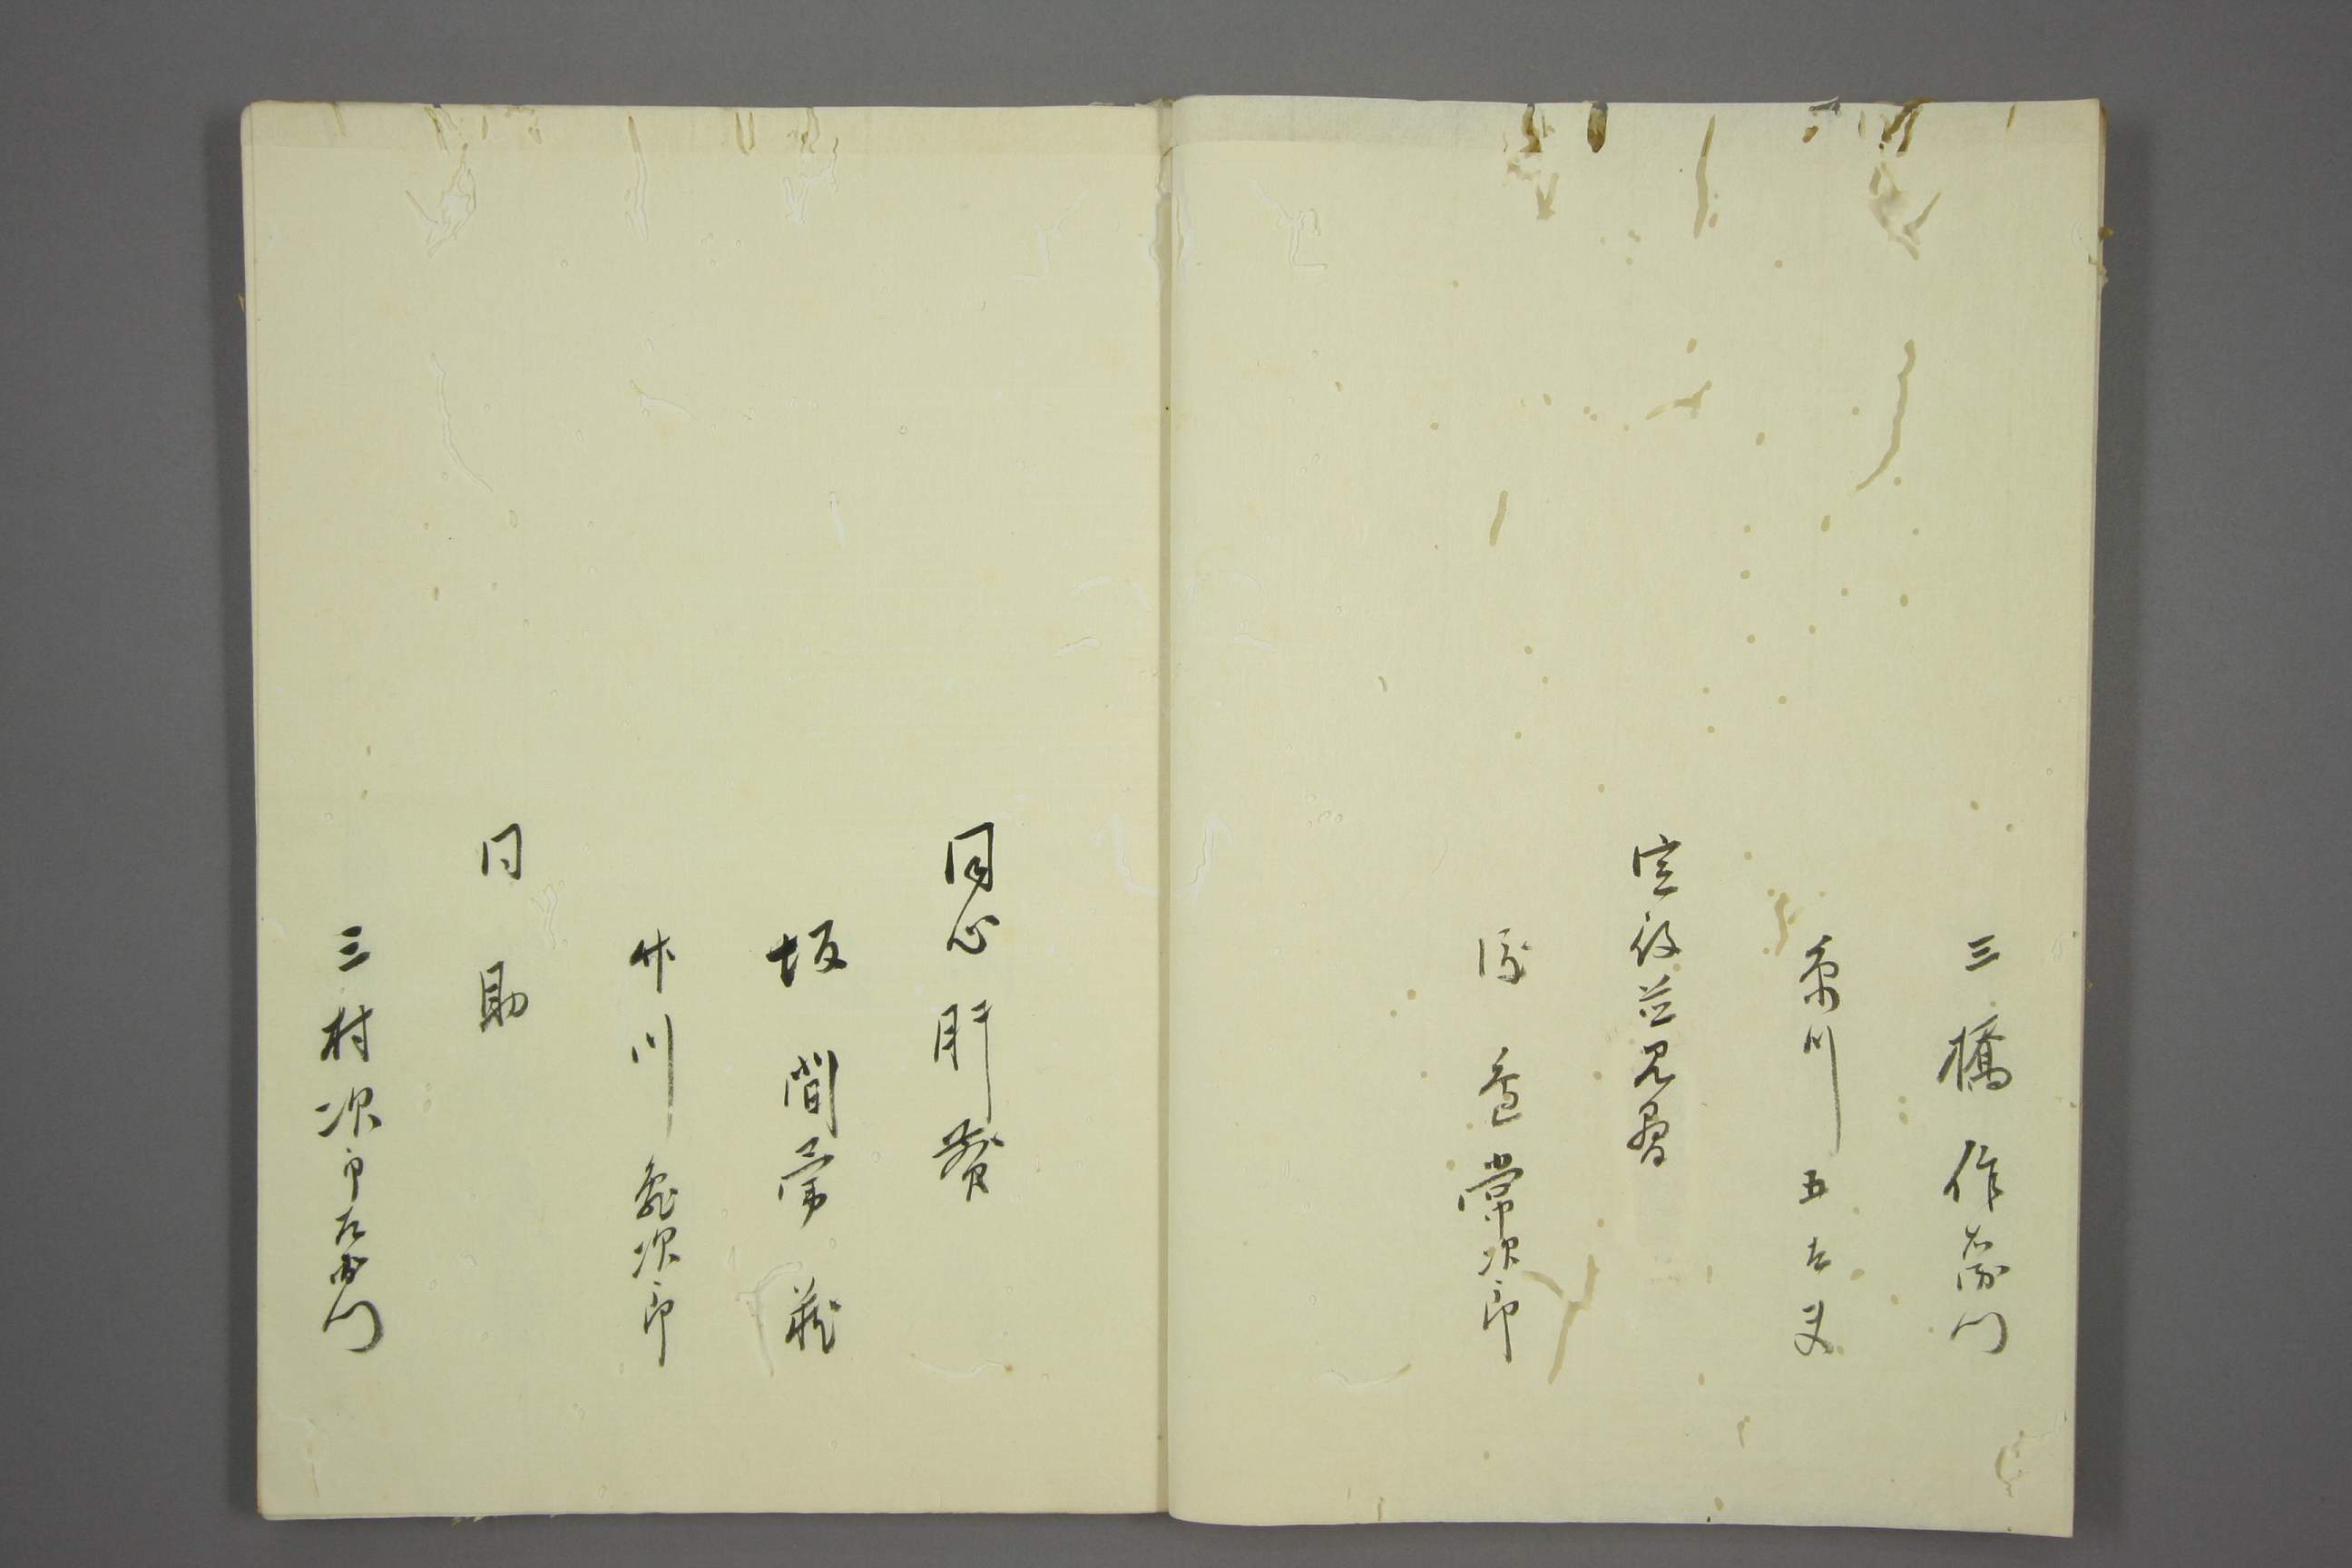 三橋作右衛門
川五左又
定役並見習
常次郎
同心肝煎
坂間常蔵
竹川亀次郎
同助
三村次郎左衛門